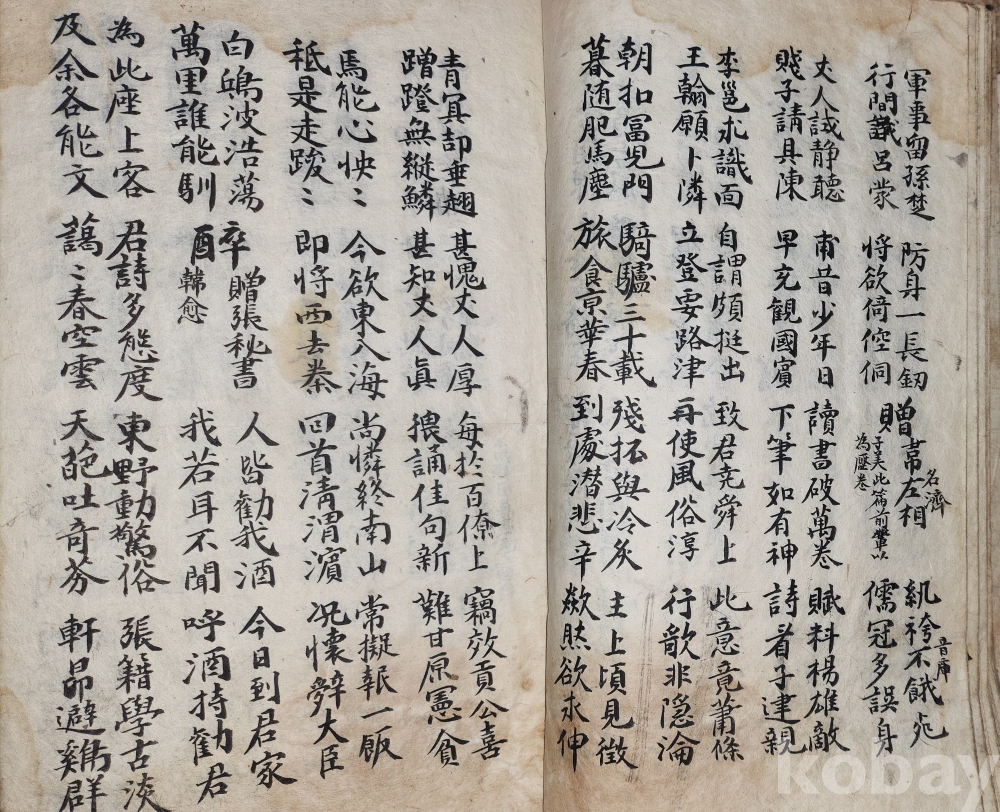 軍事留孫楚
行間識呂蒙
防身一長釰
將欲倚倥侗
贈韋左相
名濟
子美此篇前輩以
為壓卷
紈袴不餓死
音庫
儒冠多誤身
丈人試静聽
賤子請具陳
甫昔少年日
早充觀國賓
讀書破萬卷
下筆如有神
賦料楊雄敵
詩看子建親
李邕求識面
王翰願卜隣
自謂頗挺出
立登要路津
致君尭舜上
再使風俗淳
此意竟蕭條
行歌非隠淪
朝扣冨児門
暮随肥馬塵
騎驢三十載
旅食京華春
殘杯與冷炙
到處潜悲辛
主上頃見徵
欻然欲求伸
青冥却垂翅
蹭蹬無縱鱗
甚愧丈人厚
甚知丈人眞
每於百僚上
猥誦佳句新
竊效貢公喜
難甘原憲貧
焉能心怏〻
秪是走踆〻
今欲東入海
即將西去秦
尚憐終南山
回首淸渭濱
常擬報一飯
况懷辭大臣
白鷗波浩蕩
萬里誰能馴
醉贈張秘書
韓愈
人皆勸我酒
我若耳不聞
今日到君家
呼酒持勸君
為此座上客
及余各能文
君詩多態度
藹〻春空雲
東野動驚俗
天葩吐奇芬
張籍學古淡
軒昻避雞群
kobay